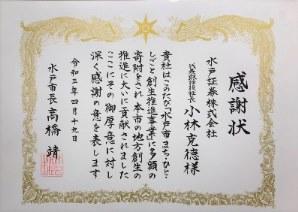 感謝状
水戸証券株式会社
代表取締役社長
小林克徳様
貴社は、このたび「水戸市まち・ひと・
しごと創生推進事業」に多額の
寄附をされ本市の地方創生の
推進に大いに貢献されました
ここにその御厚意に対し
深く感謝の意を表します
令和二年四月十九日
水戸市長 高橋 靖